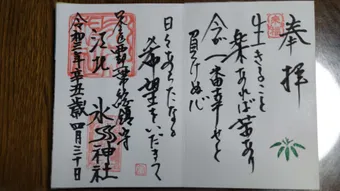 奉拝
生きること
楽あれば苦あり
今が一番幸せと
負けぬ心
日々あらたなる
希望をいだきて
総鎮守
江北 氷川神社
令和三年辛丑歳四月三十日